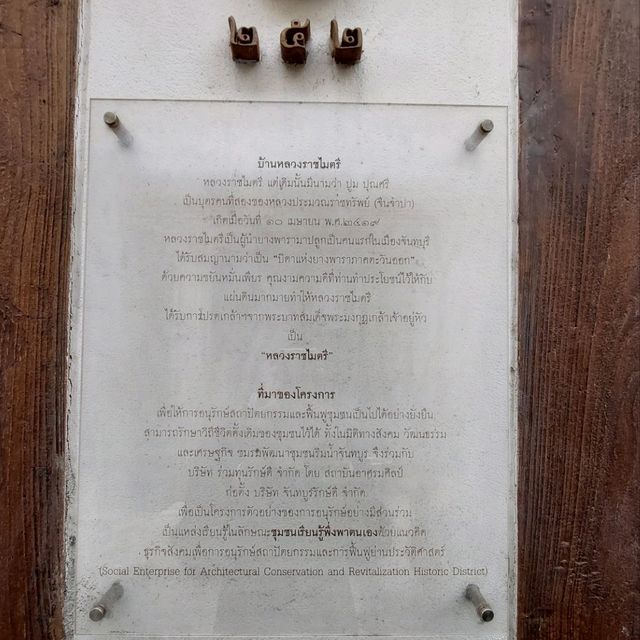 ๒ ๕ ๒
บ้านหลวงราชไมตรี
หลวงราชไมตรี แต่เดิมนั้นมีนามว่า ปูม ปุณศรี
เป็นบุตรคนที่สองของหลวงประมวณราชทรัพย์ (จีนจำปา)
เกิดเมื่อวันที่ ๑๐ เมษายน พ.ศ.๒๔๑๙
หลวงราชไมตรีเป็นผู้นำยางพารามาปลูกเป็นคนแรกในเมืองจันทบุรี
ได้รับสมญานามว่าเป็น "บิดาแห่งยางพาราภาคตะวันออก"
ด้วยความขยันหมั่นเพียร คุณงามความดีที่ท่านทำประโยชน์ไว้ให้กับ
แผ่นดินมากมายทำให้หลวงราชไมตรี
ได้รับการโปรดเกล้าฯจากพระบาทสมเด็จพระมงกุฎเกล้าเจ้าอยู่หัว
เป็น
"หลวงราชไมตรี"
ที่มาของโครงการ
เพื่อให้การอนุรักษ์สถาปัตยกรรมและฟื้นฟูชุมชนเป็นไปได้อย่างยั่งยืน
สามารถรักษาวิถีชีวิตดั้งเดิมของชุมชนไว้ได้ ทั้งในมิติทางสังคม วัฒนธรรม
และเศรษฐกิจ ชมรมพัฒนาชุมชนริมน้ำจันทบูร จึงร่วมกับ
บริษัท ร่วมทุนรักษ์ดี จำกัด โดย สถาบันอาศรมศิลป์
ก่อตั้ง บริษัท จันทบูรรักษ์ดี จำกัด
เพื่อเป็นโครงการตัวอย่างของการอนุรักษ์อย่างมีส่วนร่วม
เป็นแหล่งเรียนรู้ในลักษณะชุมชนเรียนรู้พึ่งพาตนเองด้วยแนวคิด
ธุรกิจสังคมเพื่อการอนุรักษ์สถาปัตยกรรมและการฟื้นฟูย่านประวัติศาสตร์
(Social Enterprise for Architectural Conservation and Revitalization Historic District)